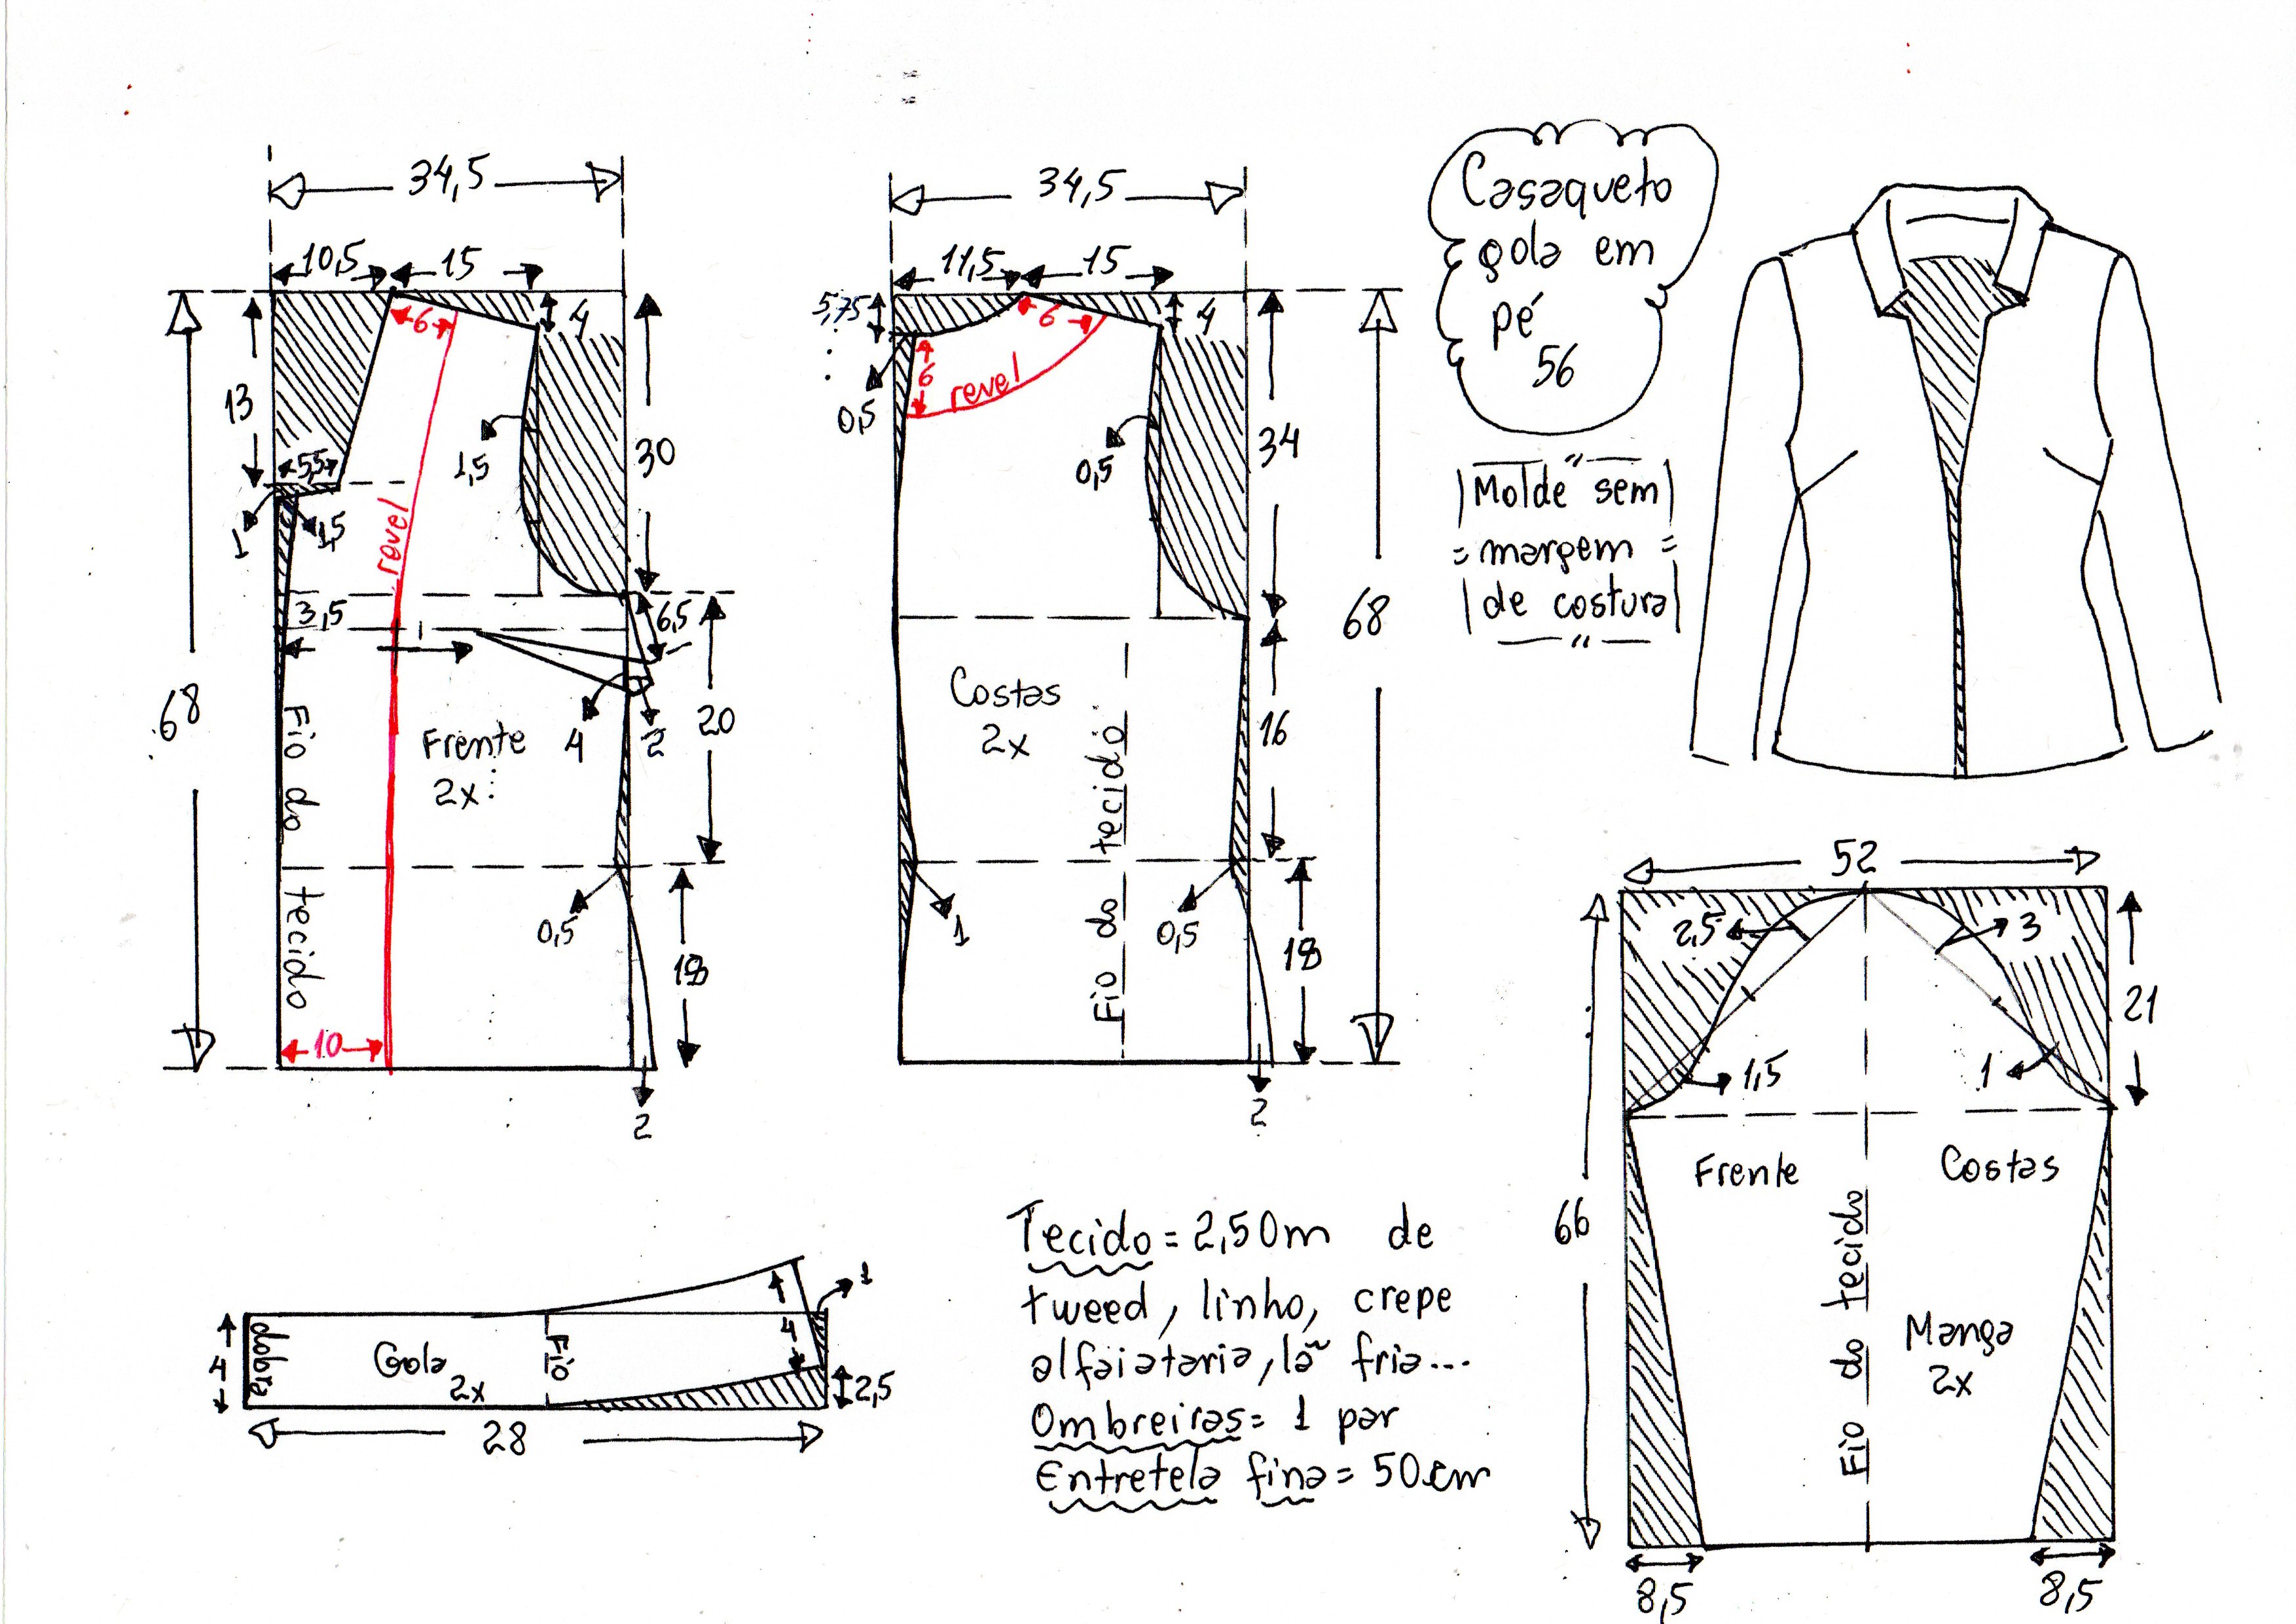 34,5
10,5
15
4
6
13
5,5
1
1,5
1,5
30
revel
3,5
6,5
4
2
20
68
Fio do tecido
Frente
2x
0,5
18
10
2
34,5
11,5
15
5,75
4
6
6
revel
0,5
0,5
34
68
Costas
2x
Fio do tecido
16
1
0,5
18
2
Casaqueto
gola em
pé
56
Molde sem
margem
de costura
52
2,5
3
21
1,5
1
Frente
Costas
66
Fio do tecido
Manga
2x
8,5
8,5
4
dobra
Gola
2x
Fio
4
1
2,5
28
Tecido = 2,50m de
tweed, linho, crepe
alfaiataria, lã fria...
Ombreiras = 1 par
Entretela fina = 50cm